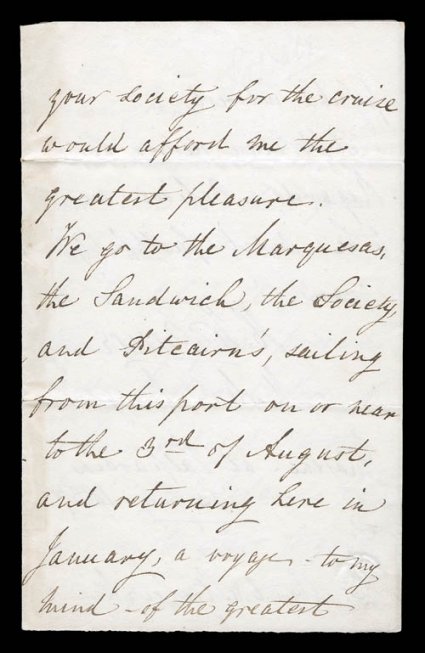 your society for the cruise
would afford me the
greatest pleasure.
We go to the Marquesas,
the Sandwich, the Society,
and Pitcairn's, sailing
from this port on or near
to the 3rd of August,
and returning here in
January, a voyage - to my
mind - of the greatest